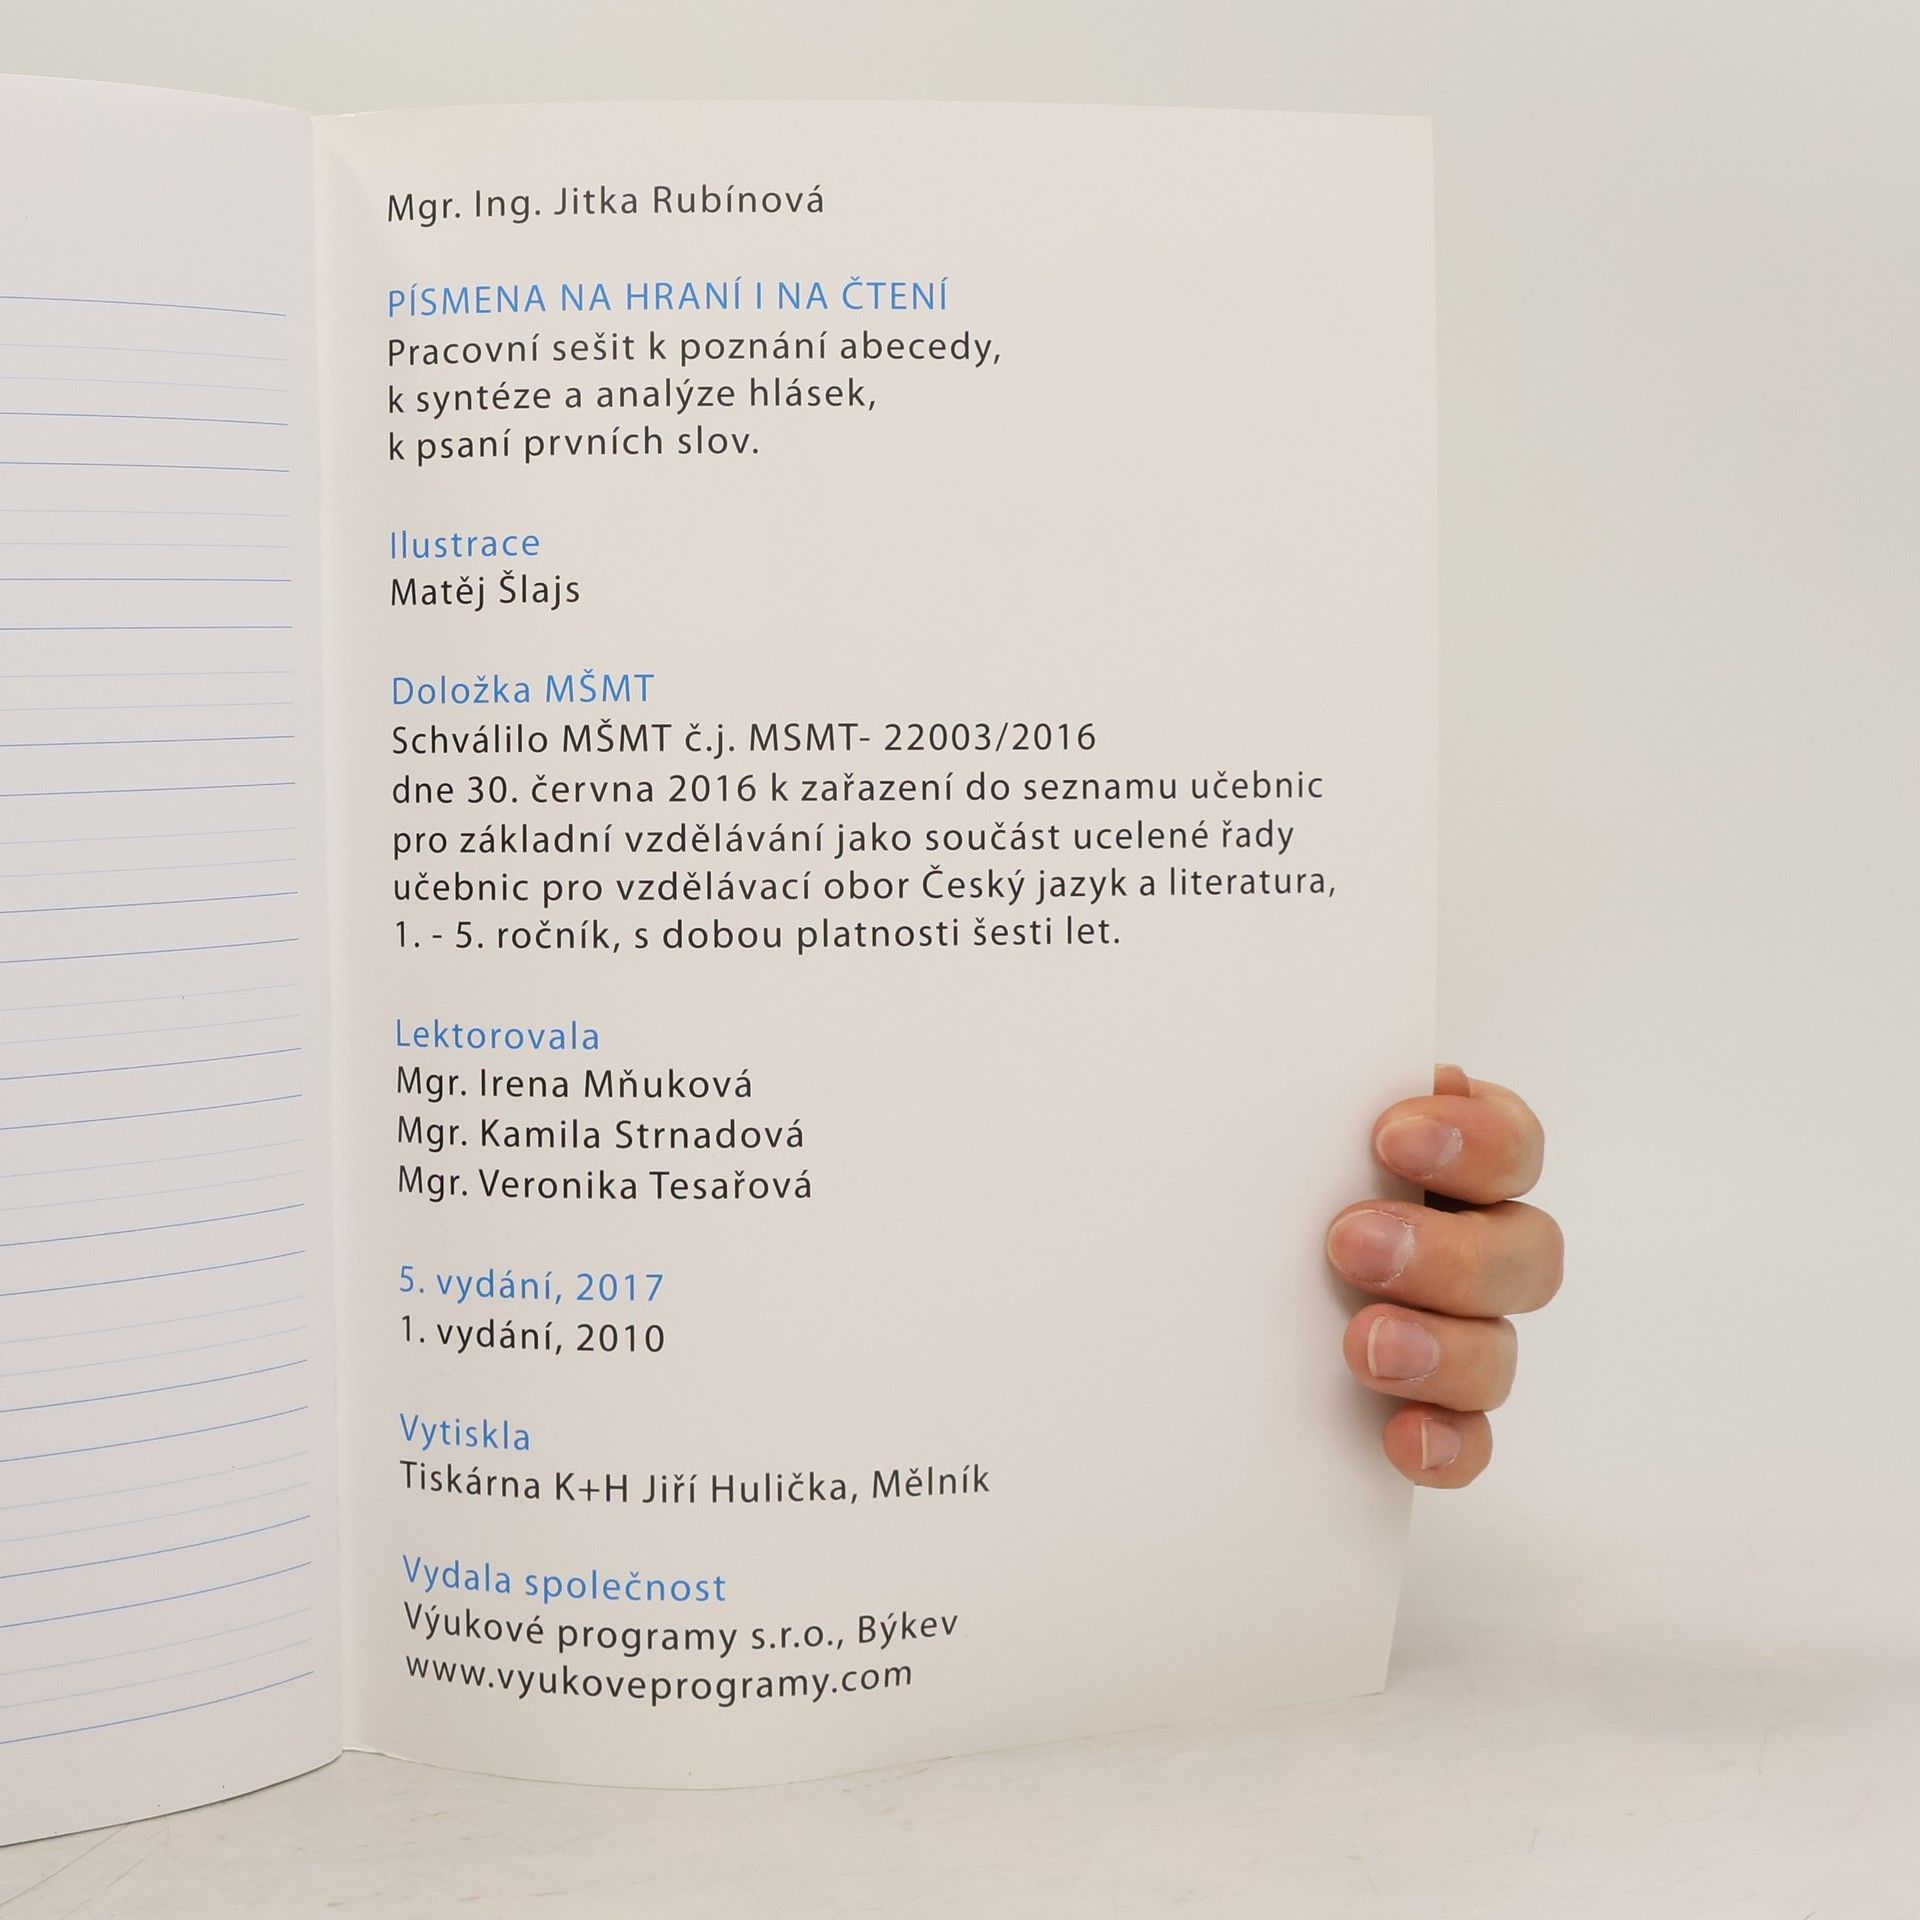 Mgr. Ing. Jitka Rubínová
PÍSMENA NA HRANÍ I NA ČTENÍ
Pracovní sešit k poznání abecedy,
k syntéze a analýze hlásek,
k psaní prvních slov.
Ilustrace
Matěj Šlajs
Doložka MŠMT
Schválilo MŠMT č.j. MSMT- 22003/2016
dne 30. června 2016 k zařazení do seznamu učebnic
pro základní vzdělávání jako součást ucelené řady
učebnic pro vzdělávací obor Český jazyk a literatura,
1. - 5. ročník, s dobou platnosti šesti let.
Lektorovala
Mgr. Irena Mňuková
Mgr. Kamila Strnadová
Mgr. Veronika Tesařová
5. vydání, 2017
1. vydání, 2010
Vytiskla
Tiskárna K+H Jiří Hulička, Mělník
Vydala společnost
Výukové programy s.r.o., Býkev
www.vyukoveprogramy.com